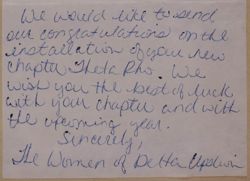 We would like to send
our congratulations on the
installation of your new
chapter Theta Rho. We
wish you the best of luck
with your chapter and with
the upcoming year.
Sincerely,
The Women of Delta Upsilon